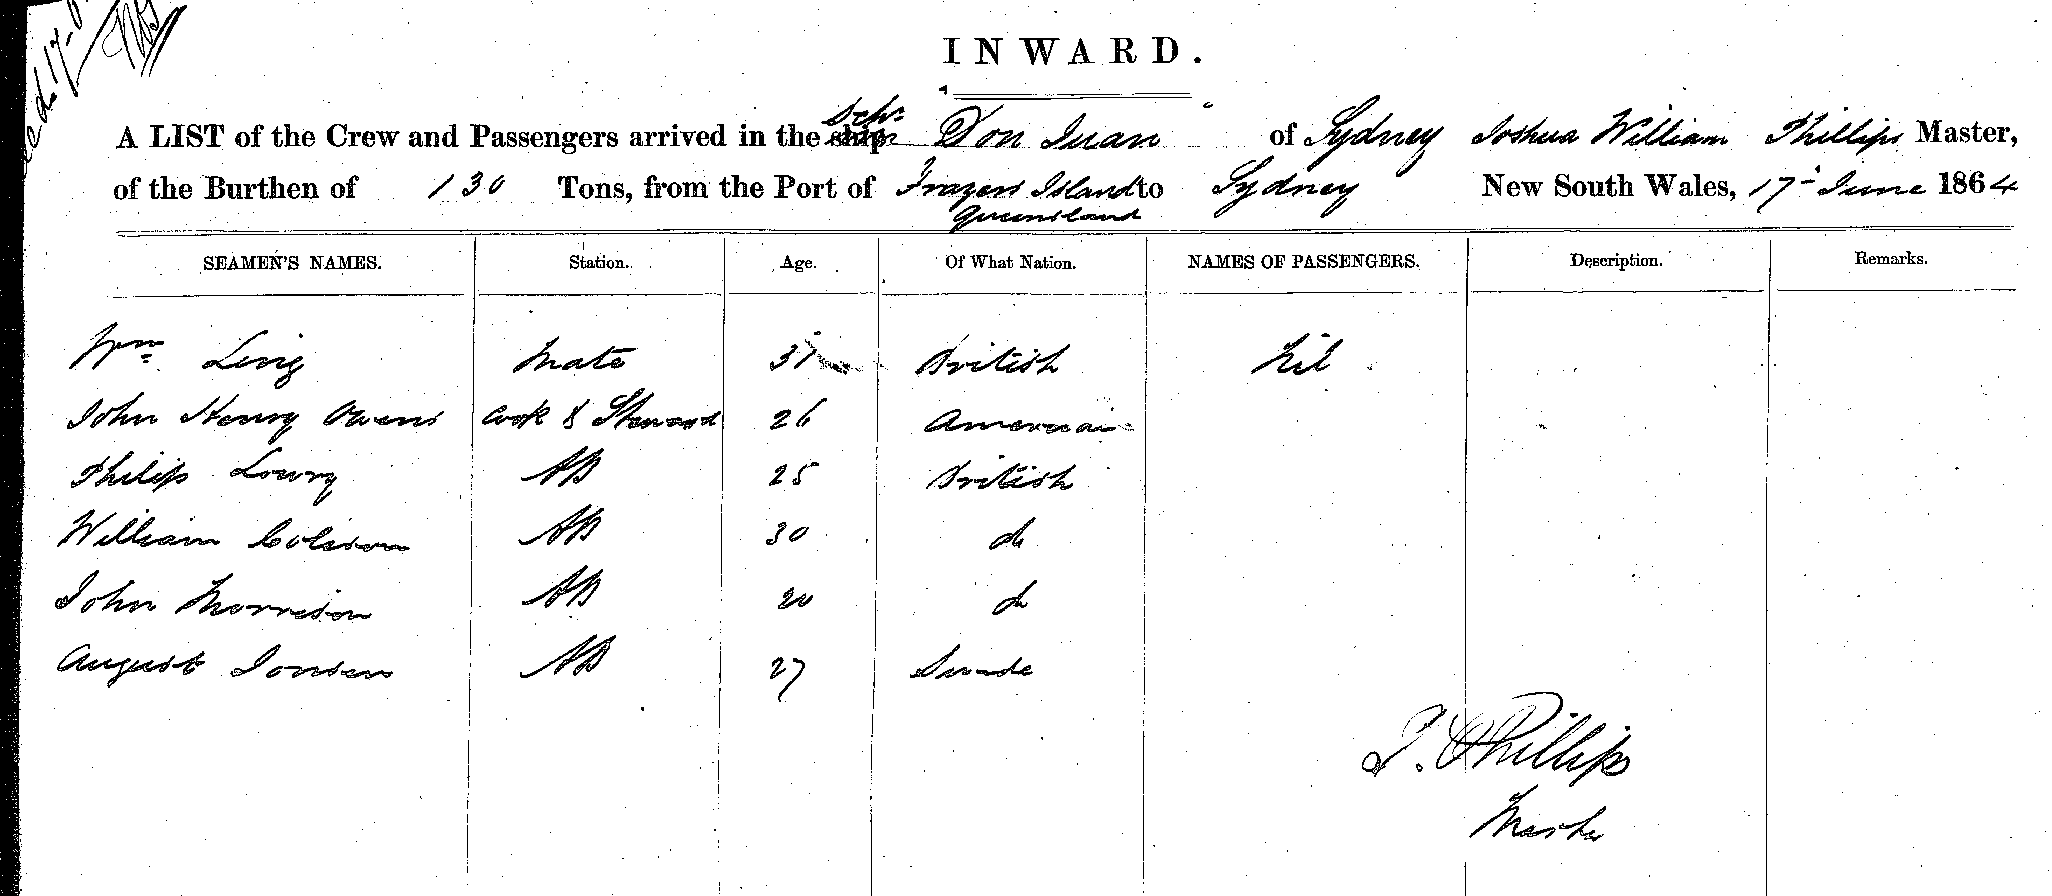 INWARD.
A LIST of the Crew and Passengers arrived in the ship Schr Don Juan of Sydney Joshua William Phillips Master,
of the Burthen of 130 Tons, from the Port of Frazers Island Queensland to Sydney New South Wales, 17 June 1864
SEAMEN'S NAMES. Station. Age. Of What Nation. NAMES OF PASSENGERS. Description. Remarks.
Wm Ling Mate 31 British Nil
John Henry Owens Cook & Steward 26 American
Philip Lowry AB 25 British
William Colison AB 30 do
John Morrison AB 20 do
August Jonsen AB 27 Swede
J. Phillips
Master